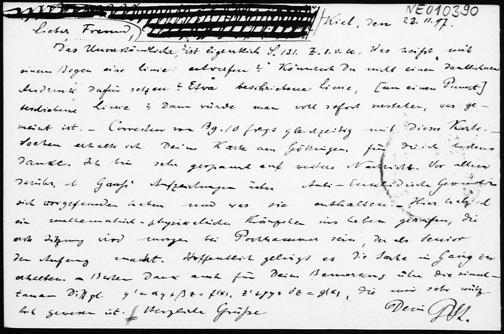 NE010390
Kiel, den 22.II.97.
Lieber Freund,
Das Unverständliche ist eigentlich S. 131. Z. 1. v. u. Was heißt mit
einem Bogen eine Linie entwerfen? Könntest Du nicht einen deutlicheren
Ausdruck dafür setzen? Etwa beschriebene Linie, [um einen Punct]
beschriebene Linie? Dann würde man wohl sofort verstehen, was ge-
meint ist. – Correctur von Bg. 10 folgt gleichzeitig mit dieser Karte.
Soeben erhalte ich Deine Karte aus Göttingen, für die ich bestens
danke. Ich bin sehr gespannt auf weitere Nachricht. Vor allem
darüber, ob Gauß' Aufzeichnungen über Anti-Euclidische Geometrie
sich vorgefunden haben und was sie enthalten. Hier habe ich
ein mathematisch-physikalisches Kränzchen ins Leben gerufen, die
erste Sitzung wird morgen bei Pochhammer sein, der als Senior
den Anfang macht. Hoffentlich gelingt es die Sache in Gang zu
erhalten. – Besten Dank auch für Deine Bemerkung über die simul-
tanen Diffgl. die mir sehr nütz-
lich gewesen ist. Herzliche Grüße Dein